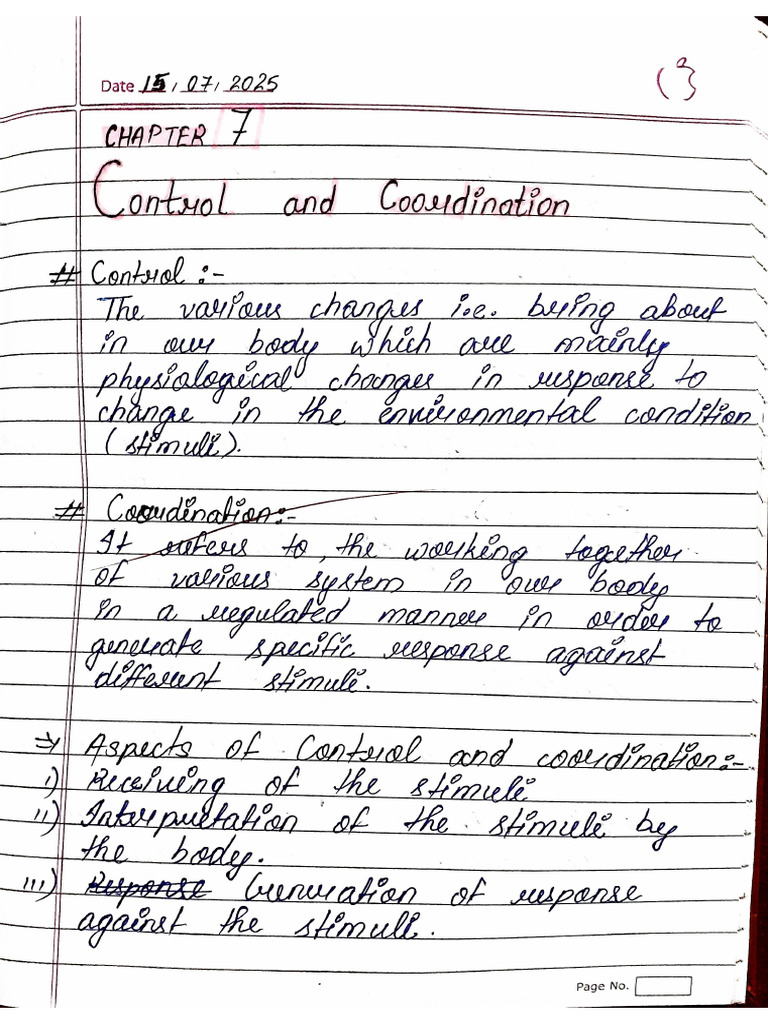 Date 15, 07, 2025
CHAPTER 7
Control and Coordination
# Control :-
The various changes i.e. bring about
in our body which are mainly
physiological changes in response to
change in the environmental condition
(stimuli).
# Coordination:-
It refers to, the working together
of various system in our body
in a regulated manner in order to
generate specific response against
different stimuli.
⇒ Aspects of Control and coordination:-
i) Receiving of the stimuli
ii) Interpretation of the stimuli by
the body.
iii) Response Generation of response
against the stimuli.
Page No.